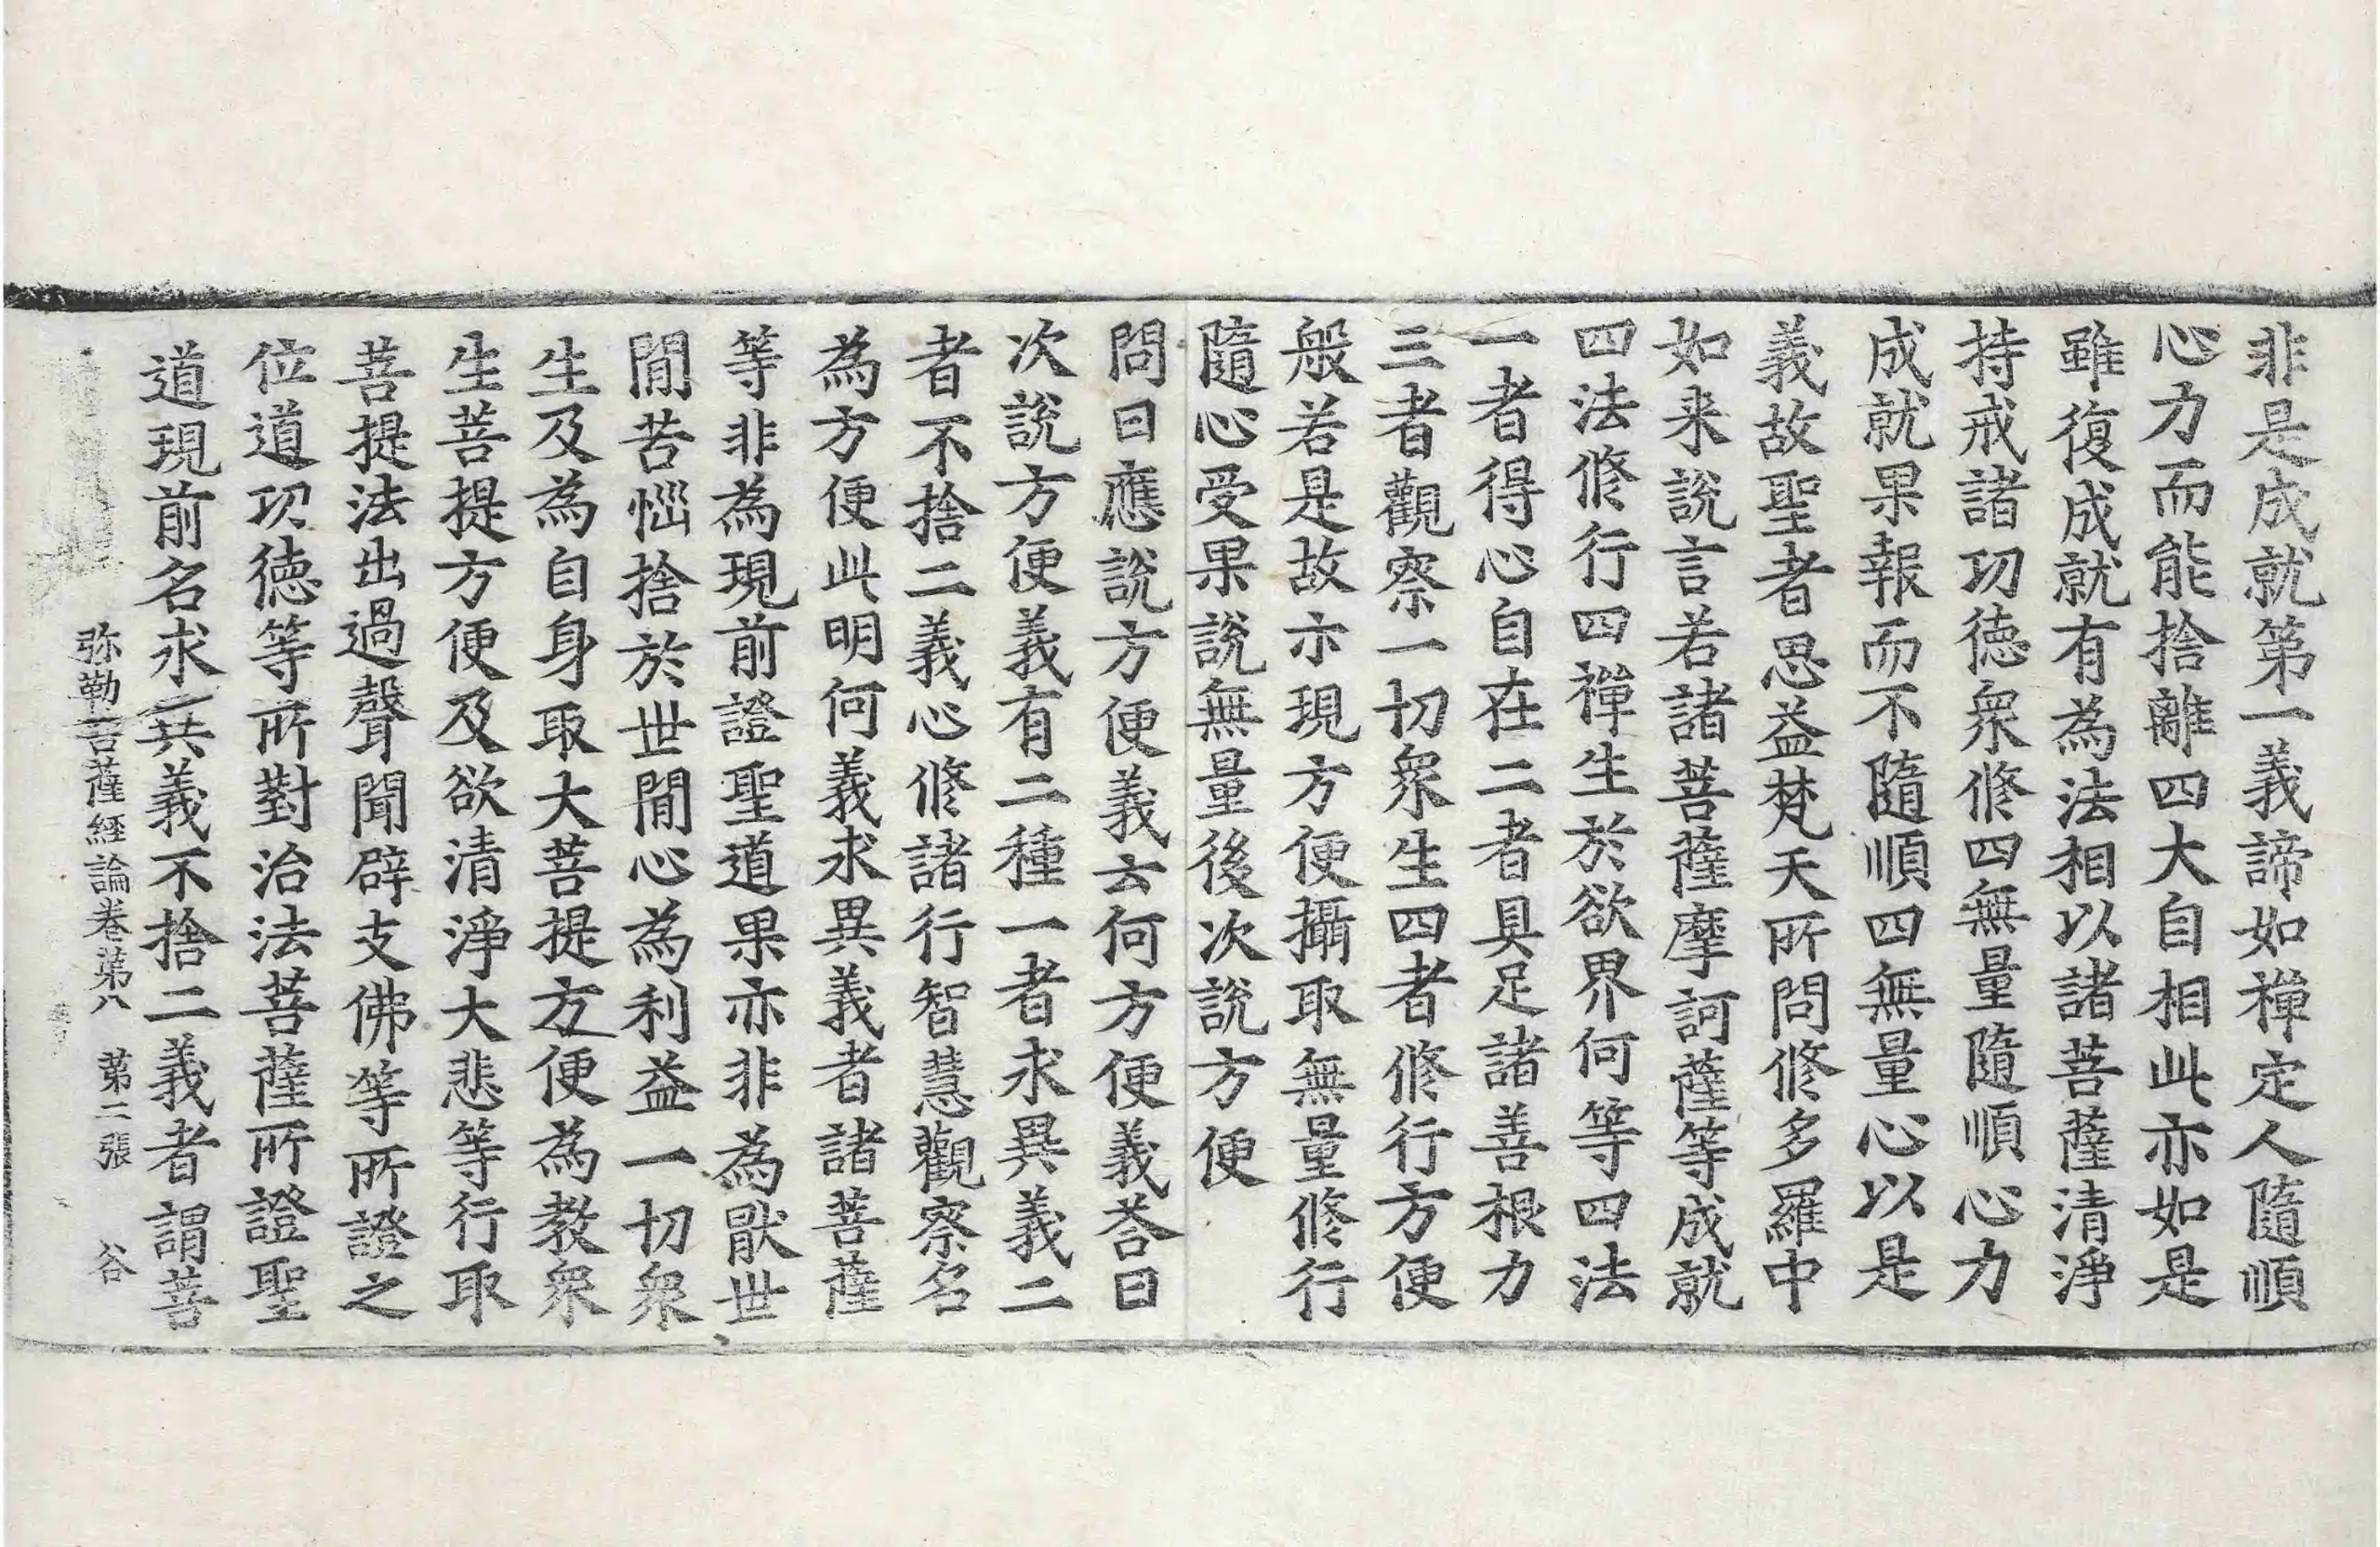 非是成就第一義諦如禪定人隨順
心力而能捨離四大自相此亦如是
雖復成就有為法相以諸菩薩清淨
持戒諸功德衆修四無量隨順心力
成就果報而不隨順四無量心以是
義故聖者思益梵天所問修多羅中
如来說言若諸菩薩摩訶薩等成就
四法修行四禪生於欲界何等四法
一者得心自在二者具足諸善根力
三者觀察一切衆生四者修行方便
般若是故示現方便攝取無量修行
隨心受果說無量後次說方便
問曰應說方便義云何方便義荅曰
次說方便義有二種一者求異義二
者不捨二義心修諸行智慧觀察名
為方便此明何義求異義者諸菩薩
等非為現前證聖道果亦非為猒世
間苦惱捨於世間心為利益一切衆
生及為自身取大菩提方便為教衆
生菩提方便及欲清淨大悲等行取
菩提法出過聲聞辟支佛等所證之
位道功德等所對治法菩薩所證聖
道現前名求共義不捨二義者謂菩
弥勒菩薩經論卷第八 第二張 谷